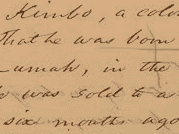 Kimbo, a colo
That he was born
Lumah, in the
was sold to a
six months ago